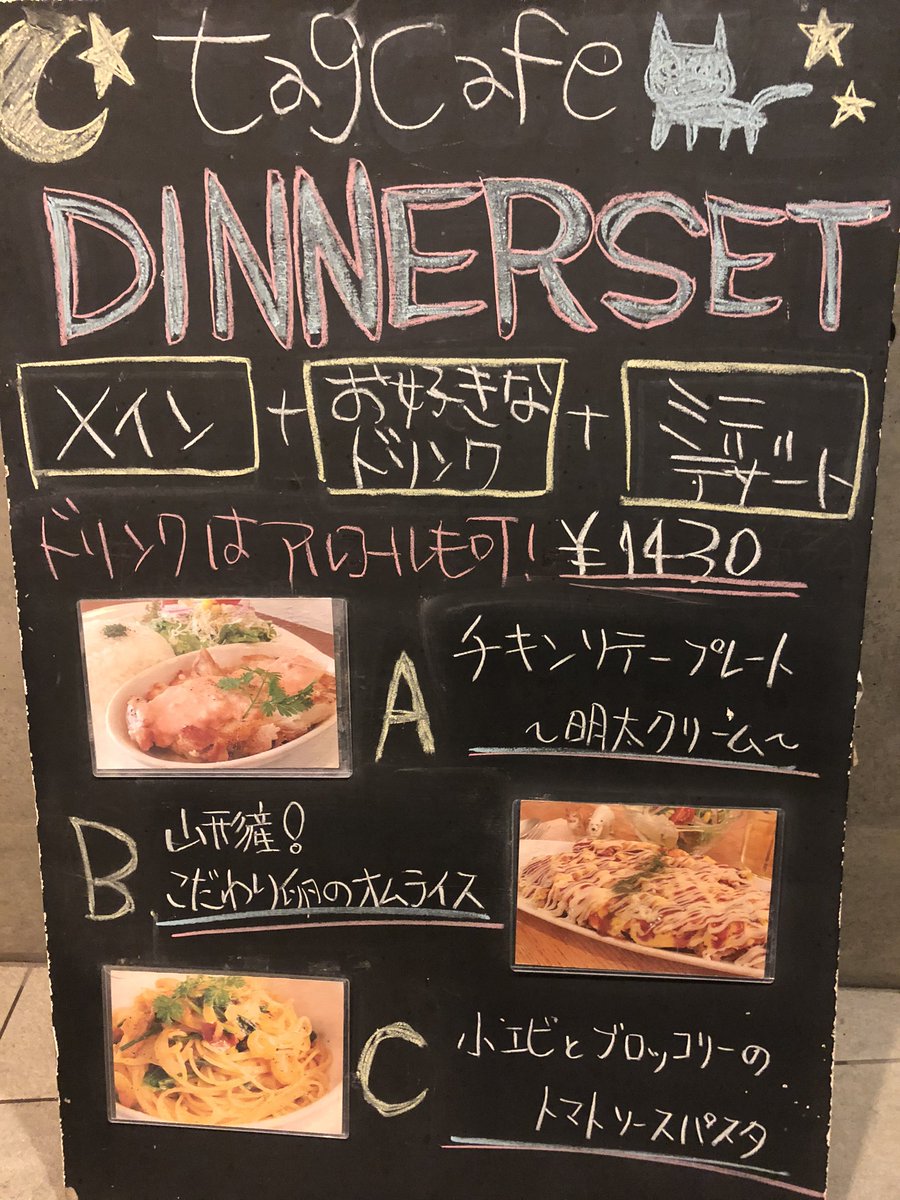 tagcafe
DINNERSET
メイン + お好きなドリンク + ミニミニデザート
ドリンクはアルコールも可! ¥1430
A チキンソテープレート
~明太クリーム~
B 山形産!
こだわり卵のオムライス
C 小エビとブロッコリーの
トマトソースパスタ